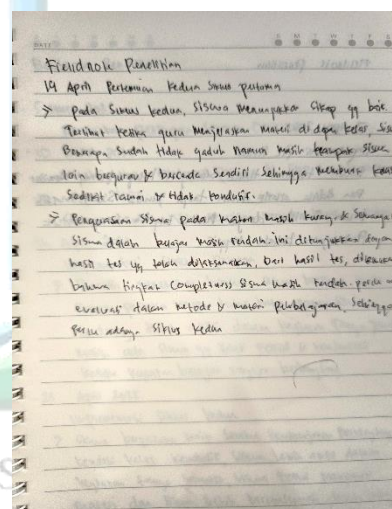 Fieldnote Penelitian
19 April Pertemuan kedua Siklus pertama
> Pada Siklus kedua, Siswa menunjukkan Sikap yg baik
Terlihat ketika guru menjelaskan materi di depan kelas,
Beberapa Sudah tidak gaduh namun masih Siswa
lain bergurau & Sendiri Sehingga membuat
Sedikit ramai & tidak kondusif.
> Penguasaan Siswa pada materi masih kurang &
Siswa dalam belajar masih rendah ini ditunjukkan
hasil tes yg telah dilaksanakan, Dari hasil tes,
bahwa tingkat Siswa masih rendah perlu
evaluasi dalam metode & materi Pembelajaran, Sehingga
Perlu adanya Siklus kedua